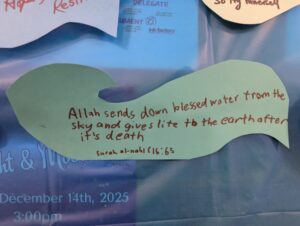 DELEGATE
Ink factory
Allah sends down blessed water from the
sky and gives life to the earth after
it's death
surah al-nahl (16:65
December 14th, 2025
3:00pm